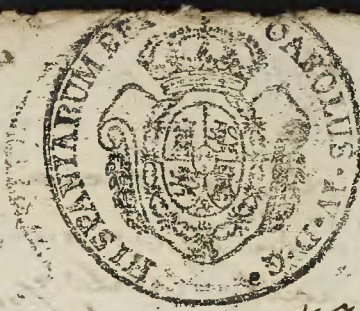 CAROLUS·IV·D·G·
HISPANIARUM REX